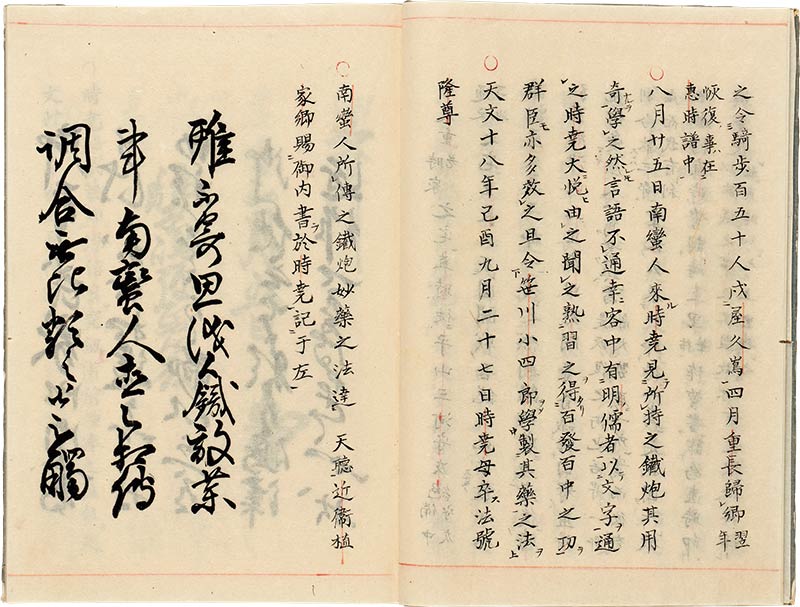 之令騎步百五十人戍屋久嶌四月重長歸郷翌年
恢復事在
惠時譜中
○八月廿五日南蠻人來時堯見所持之鐵炮其用
奇學之然言語不通幸客中有明儒者以文字通
之時堯大悦由之聞之熟習之得百發百中之功
群臣亦多效之且令笹川小四郎學製其藥之法
○天文十八年己酉九月二十七日時堯母卒法號
隆尊
○南蠻人所傳之鐵炮妙藥之法達 天聽近衞植
家卿賜御内書於時堯記于左
雖不寄思儀人鐵放藥
事南蠻人直令相傳
調合無比類之由被觸